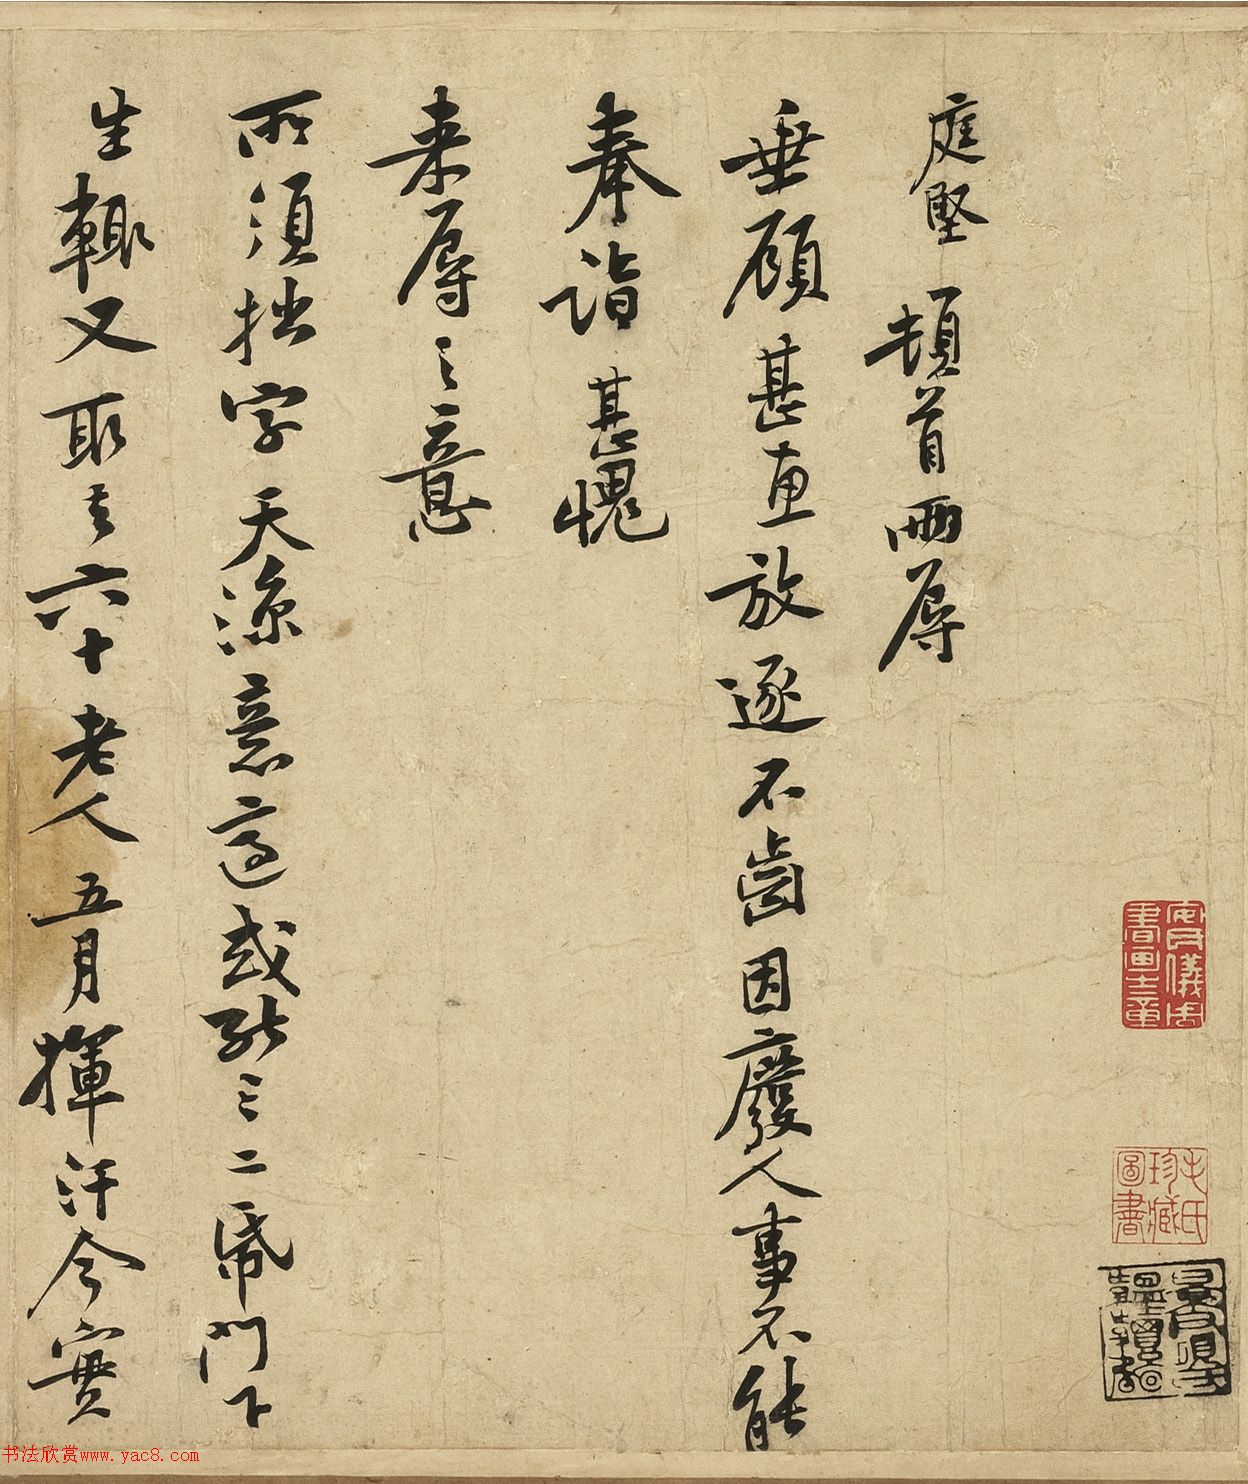 庭堅頓首兩辱
垂顧甚惠放逐不齒因廢人事不能
奉詣甚愧
来辱之意
所須拙字天涼意適或能三二紙門下
生輒又取去六十老人五月揮汗今實
安儀周家
書畫之章
毛氏
珍藏
圖書
书法欣赏www.yac8.com